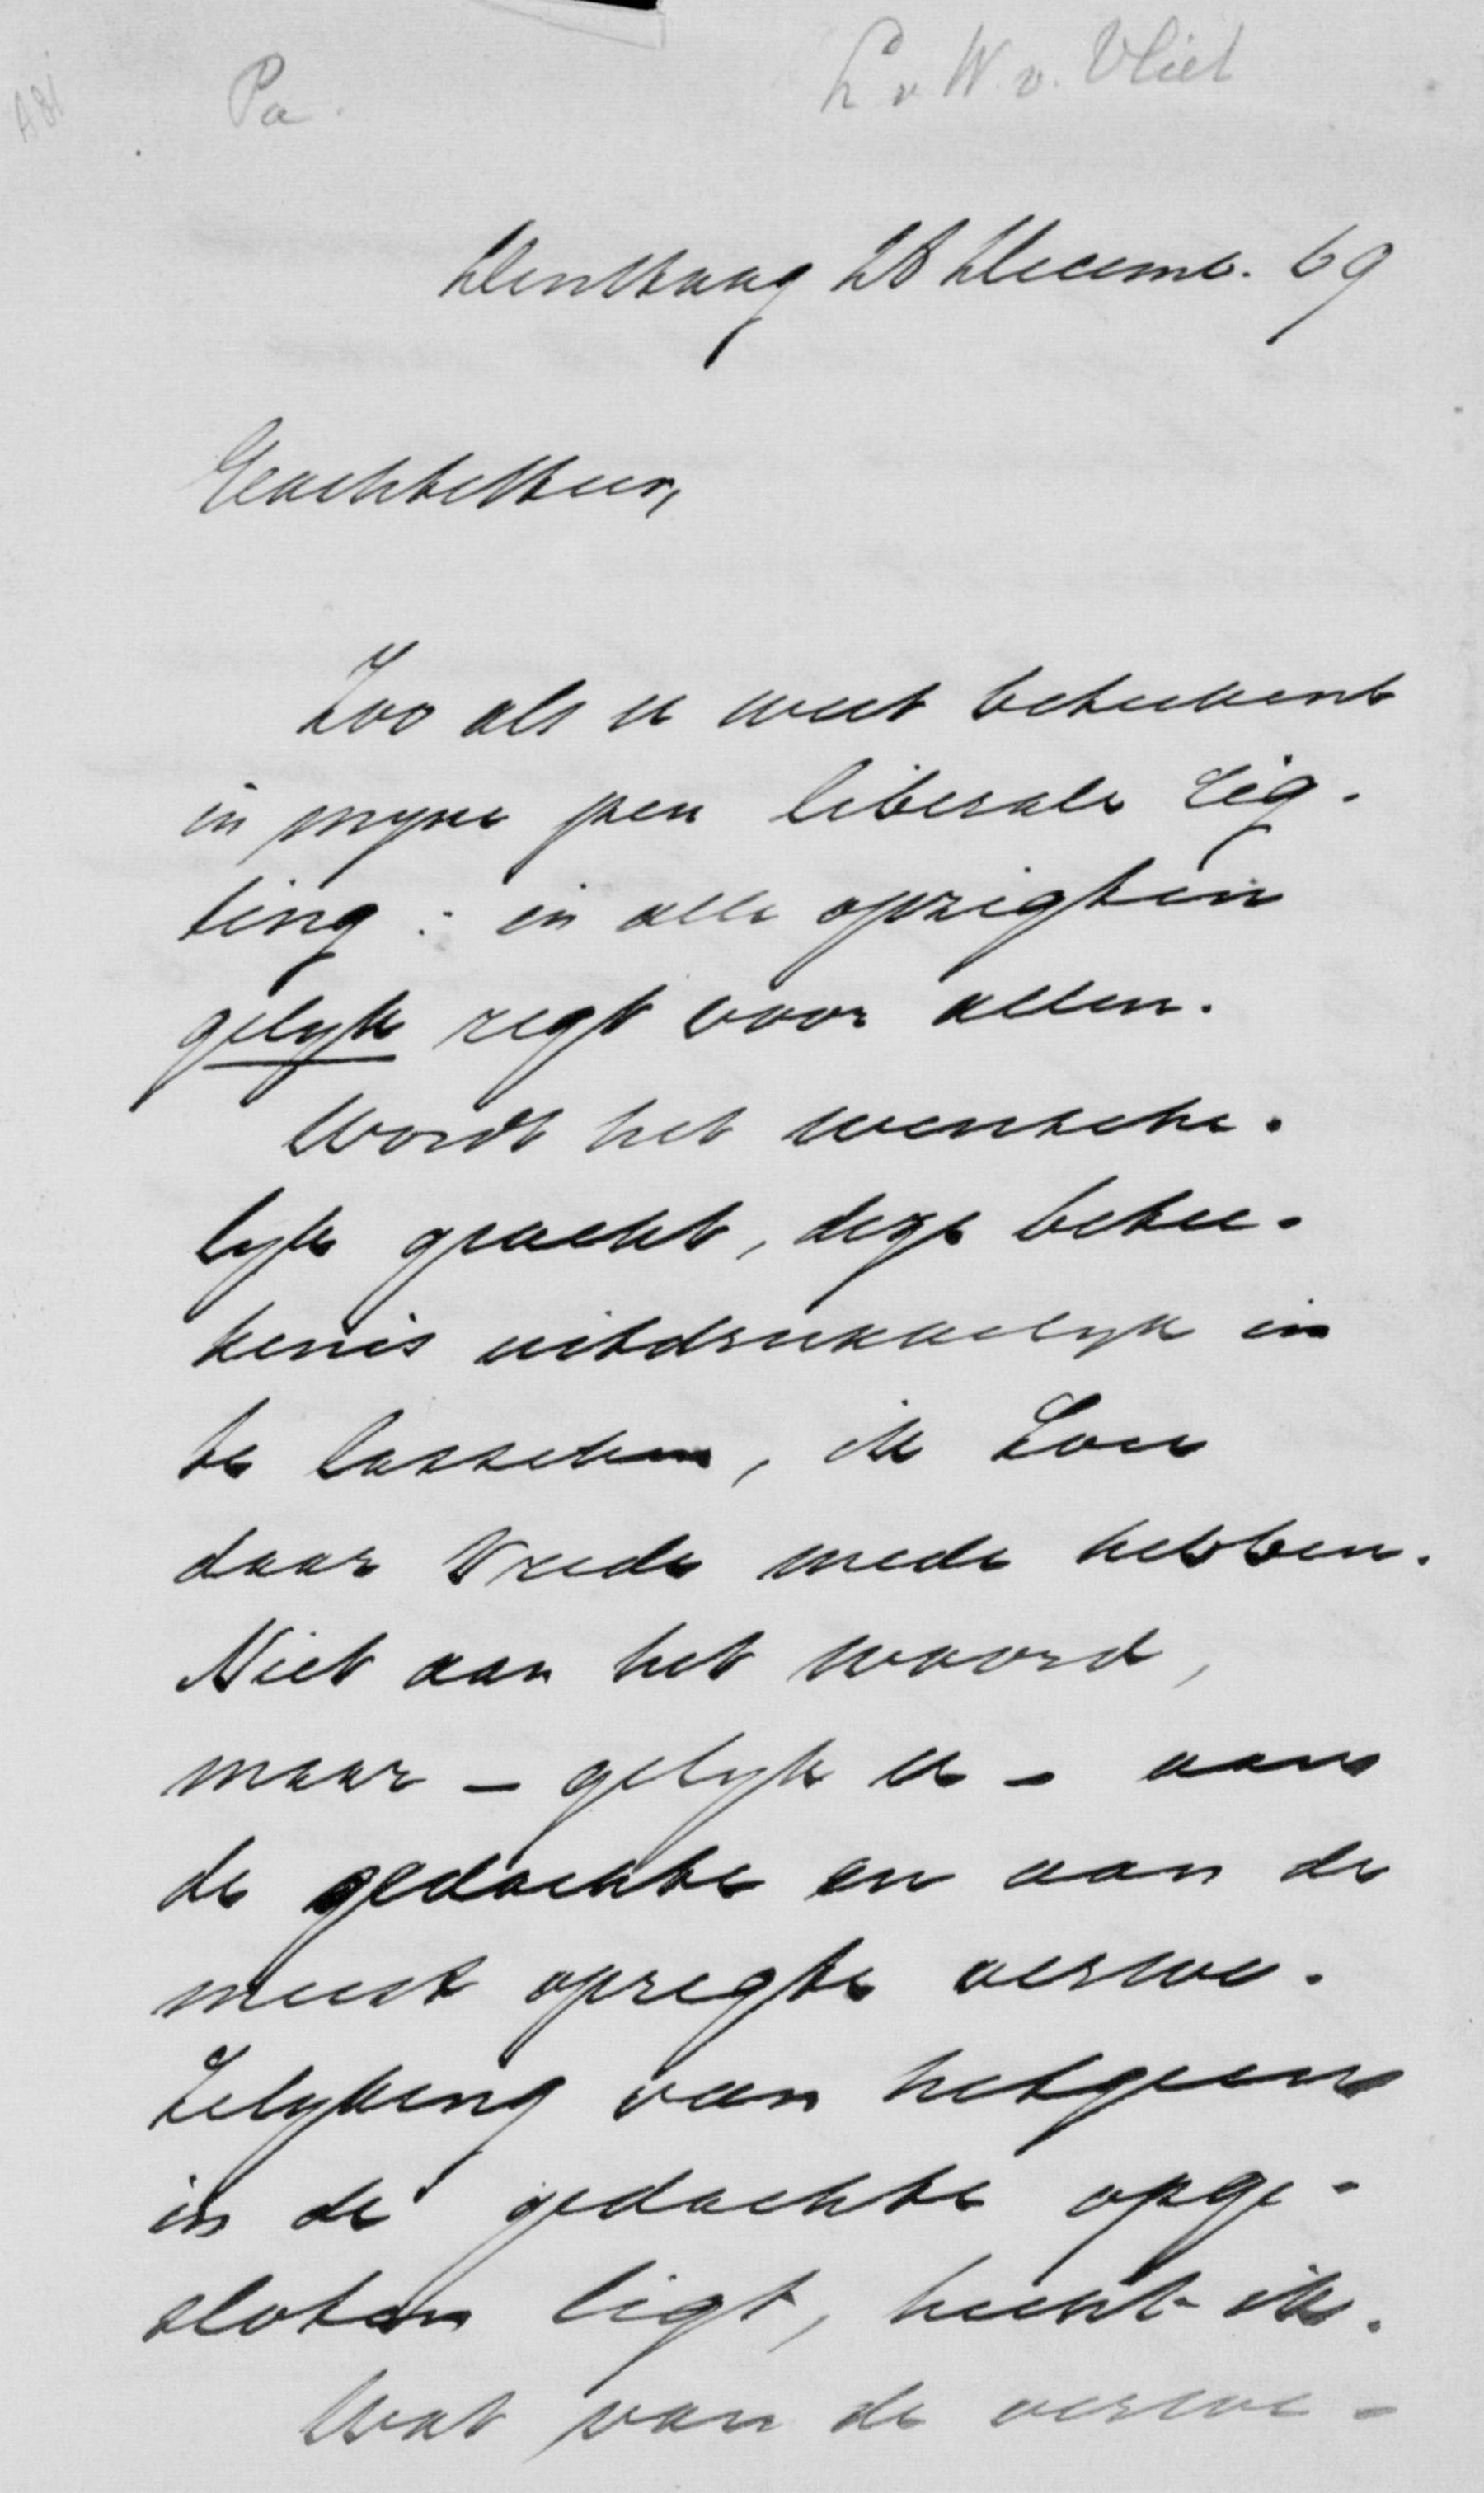 A81
Pa.
L. v. W. v. Vliet
den Haag 28 Decemb. 69
Geachte Heer,
Zoo als u weet beteekent
in myne pen liberale rig-
ting: in alle opzigten
gelyk regt voor allen.
Wordt het wensche-
lyk geacht, deze betee-
kenis uitdrukkelyk in
te lasschen, ik zou
daar vrede mede hebben.
Niet aan het woord,
maar – gelyk u – aan
de gedachte en aan de
meest opregte verwe-
zelyking van hetgeen
in de gedachte opge-
sloten ligt, hecht ik.
Wat van de verwe-